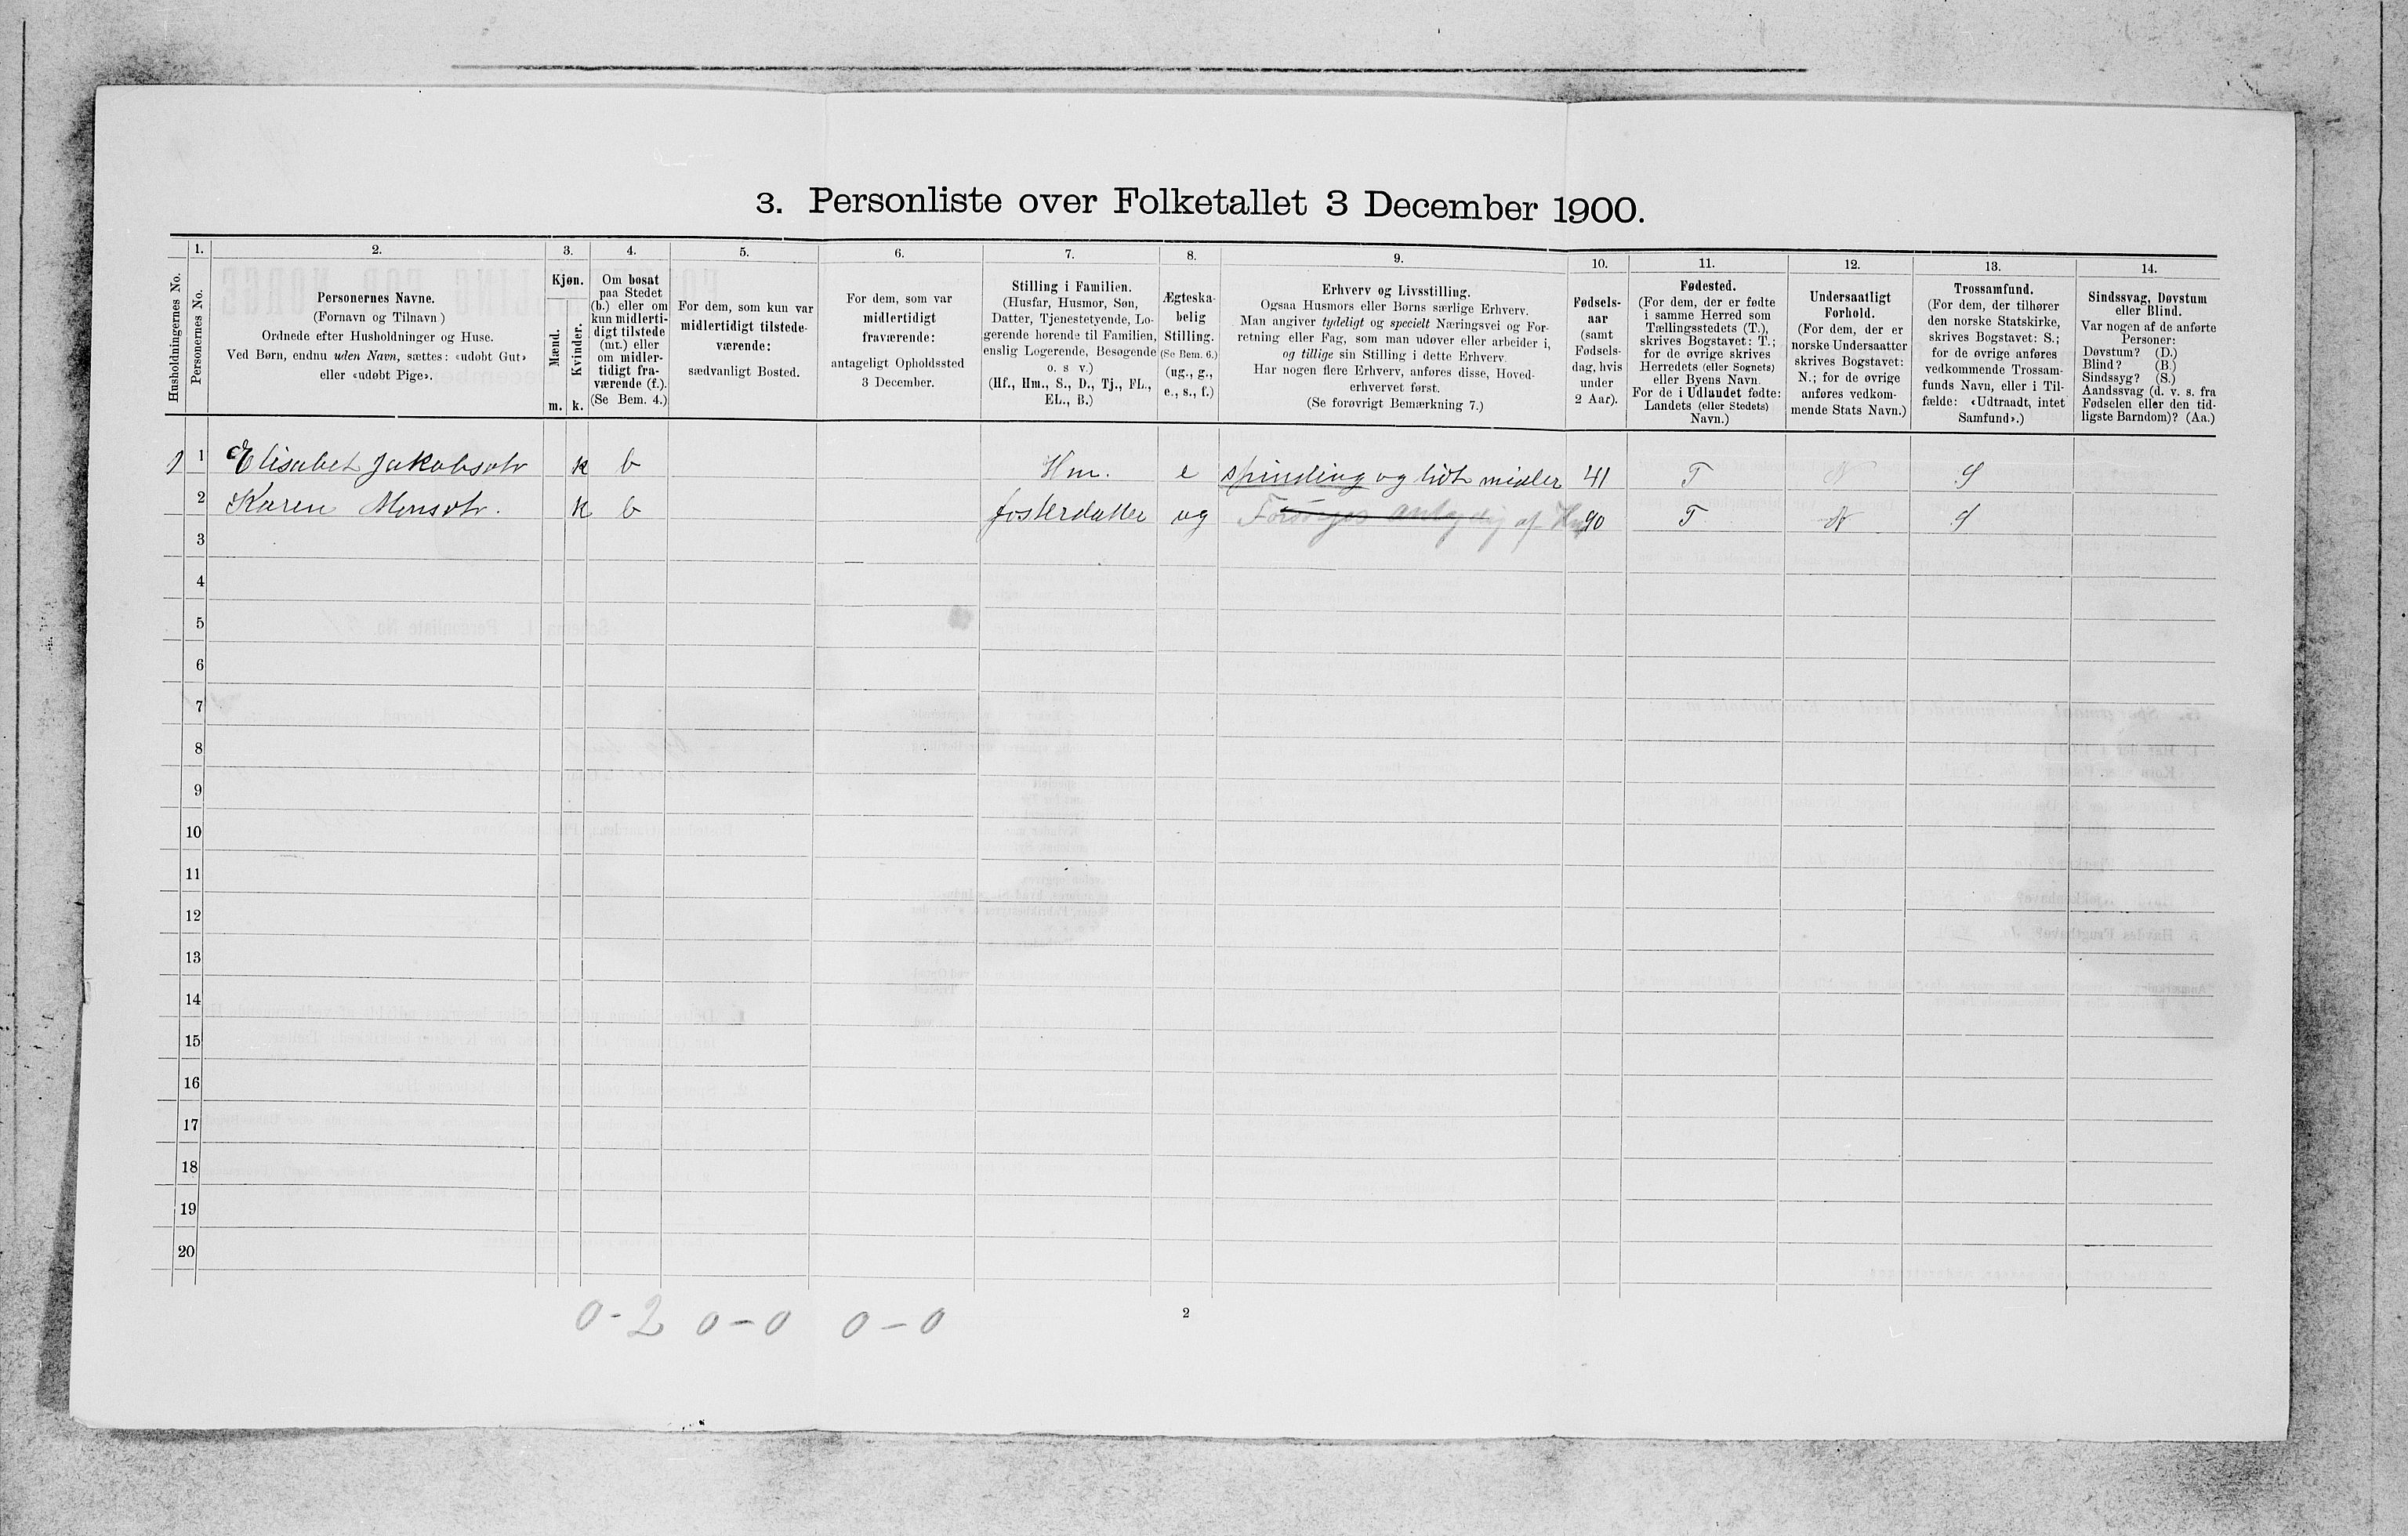 3. Personliste over Folketallet 3 December 1900.
Husholdningernes No.
1.
Personernes No.
2.
Personernes Navne.
(Fornavn og Tilnavn)
Ordnede efter Husholdninger og Huse.
Ved Børn, endnu uden Navn, sættes: «udøbt Gut»
eller «udøbt Pige».
3.
Kjøn.
Mænd.
Kvinder.
m. k.
4.
Om bosat
paa Stedet
(b.) eller om
kun midlerti-
digt tilstede
(mt.) eller
om midler-
tidigt fra-
værende (f.).
(Se Bem. 4.)
5.
For dem, som kun var
midlertidigt tilstede-
værende:
sædvanligt Bosted.
6.
For dem, som var
midlertidigt
fraværende:
antageligt Opholdssted
3 December.
7.
Stilling i Familien.
(Husfar, Husmor, Søn,
Datter, Tjenestetyende, Lo-
gerende hørende til Familien,
enslig Logerende, Besøgende
o. s v.)
(Hf., Hm., S., D., Tj., FL.,
EL., B.)
8.
Ægteska-
belig
Stilling.
(Se Bem. 6.)
(ug., g.,
e., s., f.)
9.
Erhverv og Livsstilling.
Ogsaa Husmors eller Børns særlige Erhverv.
Man angiver tydeligt og specielt Næringsvei og For-
retning eller Fag, som man udøver eller arbeider i,
og tillige sin Stilling i dette Erhverv.
Har nogen flere Erhverv, anføres disse, Hoved-
erhvervet først.
(Se forøvrigt Bemærkning 7.)
10.
Fødsels-
aar
(samt
Fødsels-
dag, hvis
under
2 Aar).
11.
Fødested.
(For dem, der er fødte
i samme Herred som
Tællingsstedets (T.),
skrives Bogstavet: T.;
for de øvrige skrives
Herredets (eller Sognets)
eller Byens Navn.
For de i Udlandet fødte:
Landets (eller Stedets)
Navn.)
12.
Undersaatligt
Forhold.
(For dem, der er
norske Undersaatter
skrives Bogstavet:
N.; for de øvrige
anføres vedkom-
mende Stats Navn.)
13.
Trossamfund.
(For dem, der tilhører
den norske Statskirke,
skrives Bogstavet: S.;
for de øvrige anføres
vedkommende Trossam-
funds Navn, eller i Til-
fælde: «Udtraadt, intet
Samfund».)
14.
Sindssvag, Døvstum
eller Blind.
Var nogen af de anførte
Personer:
Døvstum? (D.)
Blind? (B.)
Sindssyg? (S.)
Aandssvag (d. v. s. fra
Fødselen eller den tid-
ligste Barndom)? (Aa.)
1 1 Elisabet Jakobsdtr k b Hm. e spinding og lidt midler 41 T N S
2 Karen Monsdtr. k b fosterdatter ug Forsørges af Hm 90 T N S
3
4
5
6
7
8
9
10
11
12
13
14
15
16
17
18
19
20
0-2 0-0 0-0
2